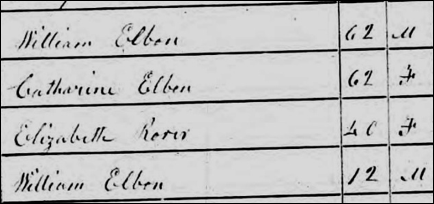 William Elbon 62 M
Catharine Elbon 62 F
Elizabeth Rover 40 F
William Elbon 12 M